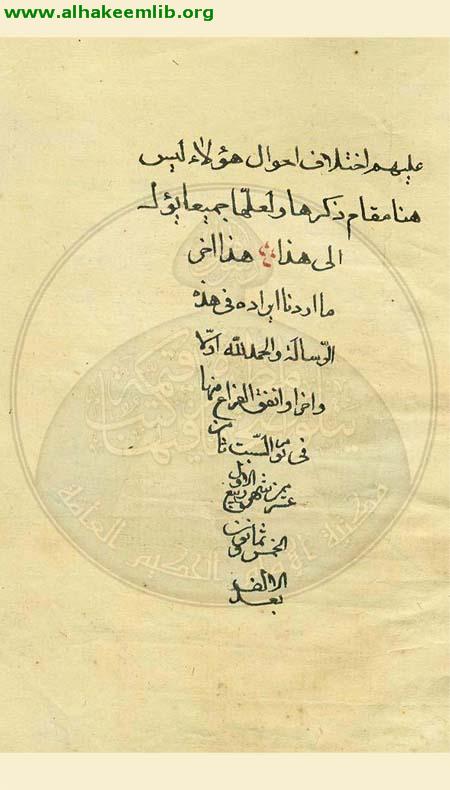 www.alhakeemlib.org
عليهم اختلاف احوال هؤلاء ليس
هنا مقام ذكرها ولعلّها جميعا يؤل
الى هذا هذا اخر
ما اردنا ايراده في هذه
الرّسالة والحمد لله اوّلا
واخرا واتفق الفراغ منها
في يوم السّبت ثامن
عشر من شهر ربيع الاول
الخمس وثمانين
بعد الالف